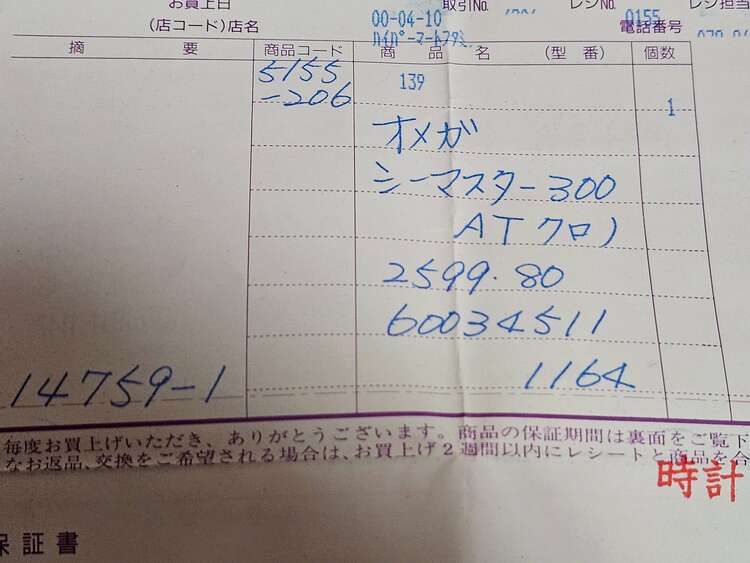 お買上日
取引No.
レジNo.
レジ担当
(店コード)店名
00-04-10
0155
電話番号
摘 要
商品コード
商 品 名 (型 番)
個数
5155
139
-206
1
オメガ
シーマスター300
ATクロノ
2599.80
60034511
14759-1
1164
毎度お買上げいただき、ありがとうございます。商品の保証期間は裏面をご覧下
なお返品、交換をご希望される場合は、お買上げ2週間以内にレシートと商品を合
時計
保証書